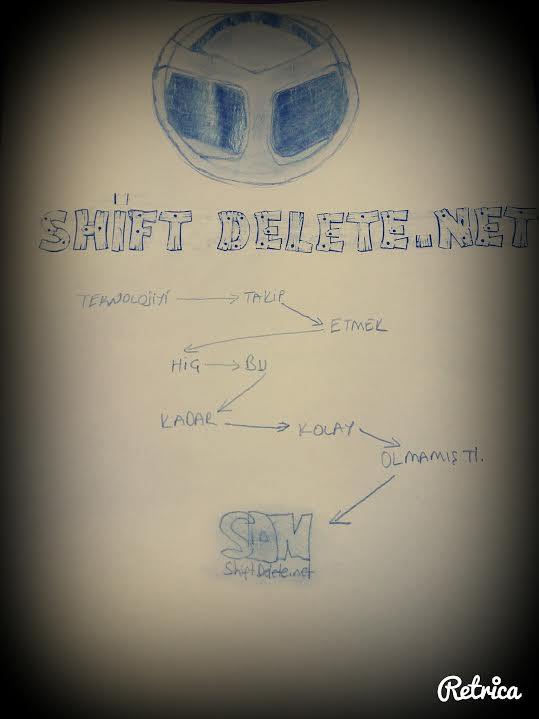 SHİFT DELETE.NET
TEKNOLOJİYİ → TAKİP
ETMEK
HİG → BU
KADAR → KOLAY
OLMAMIŞTI.
SDN
ShiftDelete.net
Retrica